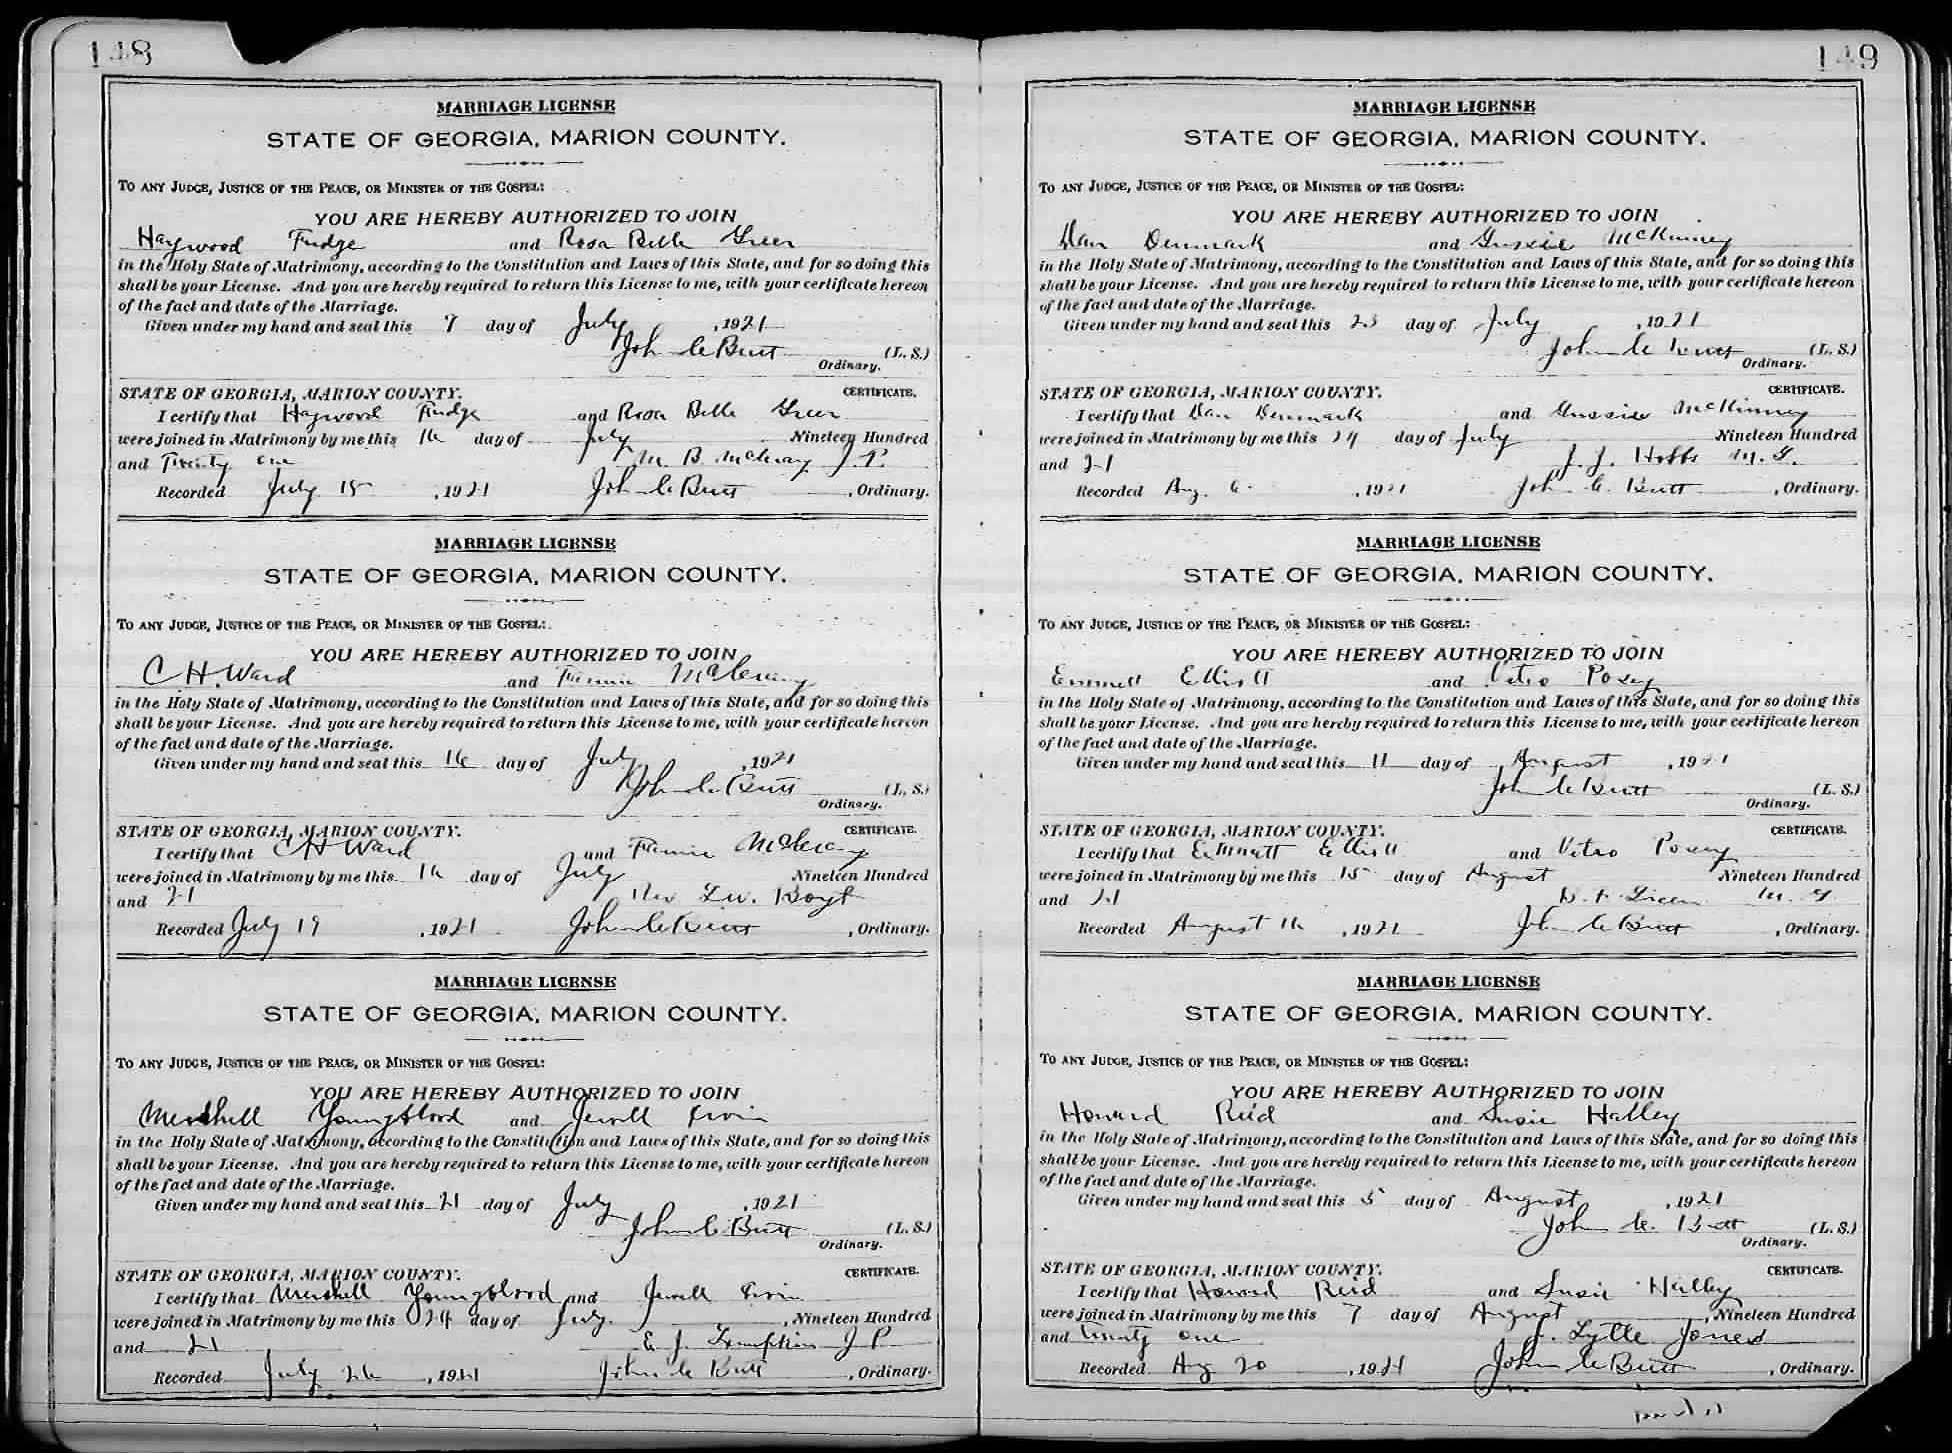 148
MARRIAGE LICENSE
STATE OF GEORGIA, MARION COUNTY.
TO ANY JUDGE, JUSTICE OF THE PEACE, OR MINISTER OF THE GOSPEL:
YOU ARE HEREBY AUTHORIZED TO JOIN
Haywood Fudge and Rosa Belle Greer
in the Holy State of Matrimony, according to the Constitution and Laws of this State, and for so doing this
shall be your License. And you are hereby required to return this License to me, with your certificate hereon
of the fact and date of the Marriage.
Given under my hand and seal this 7 day of July, 1921
John C Butt (L. S.)
Ordinary.
STATE OF GEORGIA, MARION COUNTY. CERTIFICATE.
I certify that Haywood Fudge and Rosa Belle Greer
were joined in Matrimony by me this 16 day of July Nineteen Hundred
and Twenty one M. B. J. P.
Recorded July 18, 1921 John C Butt, Ordinary.
MARRIAGE LICENSE
STATE OF GEORGIA, MARION COUNTY.
TO ANY JUDGE, JUSTICE OF THE PEACE, OR MINISTER OF THE GOSPEL:
YOU ARE HEREBY AUTHORIZED TO JOIN
C H. Ward and Fannie
in the Holy State of Matrimony, according to the Constitution and Laws of this State, and for so doing this
shall be your License. And you are hereby required to return this License to me, with your certificate hereon
of the fact and date of the Marriage.
Given under my hand and seal this 16 day of July, 1921
John C Butt (L. S.)
Ordinary.
STATE OF GEORGIA, MARION COUNTY. CERTIFICATE.
I certify that C H Ward and Fannie
were joined in Matrimony by me this 16 day of July Nineteen Hundred
and 21 Rev
Recorded July 19, 1921 John C Butt, Ordinary.
MARRIAGE LICENSE
STATE OF GEORGIA, MARION COUNTY.
TO ANY JUDGE, JUSTICE OF THE PEACE, OR MINISTER OF THE GOSPEL:
YOU ARE HEREBY AUTHORIZED TO JOIN
Mershell Youngblood and Jewell Ervin
in the Holy State of Matrimony, according to the Constitution and Laws of this State, and for so doing this
shall be your License. And you are hereby required to return this License to me, with your certificate hereon
of the fact and date of the Marriage.
Given under my hand and seal this 21 day of July, 1921
John C Butt (L. S.)
Ordinary.
STATE OF GEORGIA, MARION COUNTY. CERTIFICATE.
I certify that Mershell Youngblood and Jewell Ervin
were joined in Matrimony by me this 24 day of July, Nineteen Hundred
and 21 E. J. J P.
Recorded July 26, 1921 John C Butt, Ordinary.
149
MARRIAGE LICENSE
STATE OF GEORGIA, MARION COUNTY.
TO ANY JUDGE, JUSTICE OF THE PEACE, OR MINISTER OF THE GOSPEL:
YOU ARE HEREBY AUTHORIZED TO JOIN
Dan Denmark and Gussie McKinney
in the Holy State of Matrimony, according to the Constitution and Laws of this State, and for so doing this
shall be your License. And you are hereby required to return this License to me, with your certificate hereon
of the fact and date of the Marriage.
Given under my hand and seal this 23 day of July, 1921
John C Butt (L. S.)
Ordinary.
STATE OF GEORGIA, MARION COUNTY. CERTIFICATE.
I certify that Dan Denmark and Gussie McKinney
were joined in Matrimony by me this 24 day of July Nineteen Hundred
and 21 J. J. Hobbs M. G.
Recorded Aug. 6, 1921 John C. Butt, Ordinary.
MARRIAGE LICENSE
STATE OF GEORGIA, MARION COUNTY.
TO ANY JUDGE, JUSTICE OF THE PEACE, OR MINISTER OF THE GOSPEL:
YOU ARE HEREBY AUTHORIZED TO JOIN
Emmett Elliott and Vetro Posey
in the Holy State of Matrimony, according to the Constitution and Laws of this State, and for so doing this
shall be your License. And you are hereby required to return this License to me, with your certificate hereon
of the fact and date of the Marriage.
Given under my hand and seal this 11 day of August, 1921
John C Butt (L. S.)
Ordinary.
STATE OF GEORGIA, MARION COUNTY. CERTIFICATE.
I certify that Emmett Elliott and Vetro Posey
were joined in Matrimony by me this 15 day of August Nineteen Hundred
and 21 Green M. G.
Recorded August 16, 1921 John C Butt, Ordinary.
MARRIAGE LICENSE
STATE OF GEORGIA, MARION COUNTY.
TO ANY JUDGE, JUSTICE OF THE PEACE, OR MINISTER OF THE GOSPEL:
YOU ARE HEREBY AUTHORIZED TO JOIN
Howard Reid and Susie Halley
in the Holy State of Matrimony, according to the Constitution and Laws of this State, and for so doing this
shall be your License. And you are hereby required to return this License to me, with your certificate hereon
of the fact and date of the Marriage.
Given under my hand and seal this 5 day of August, 1921
John C. Butt (L. S.)
Ordinary.
STATE OF GEORGIA, MARION COUNTY. CERTIFICATE.
I certify that Howard Reid and Susie Halley
were joined in Matrimony by me this 7 day of August, Nineteen Hundred
and twenty one J. Lytle Jones
Recorded Aug 20, 1921 John C Butt, Ordinary.